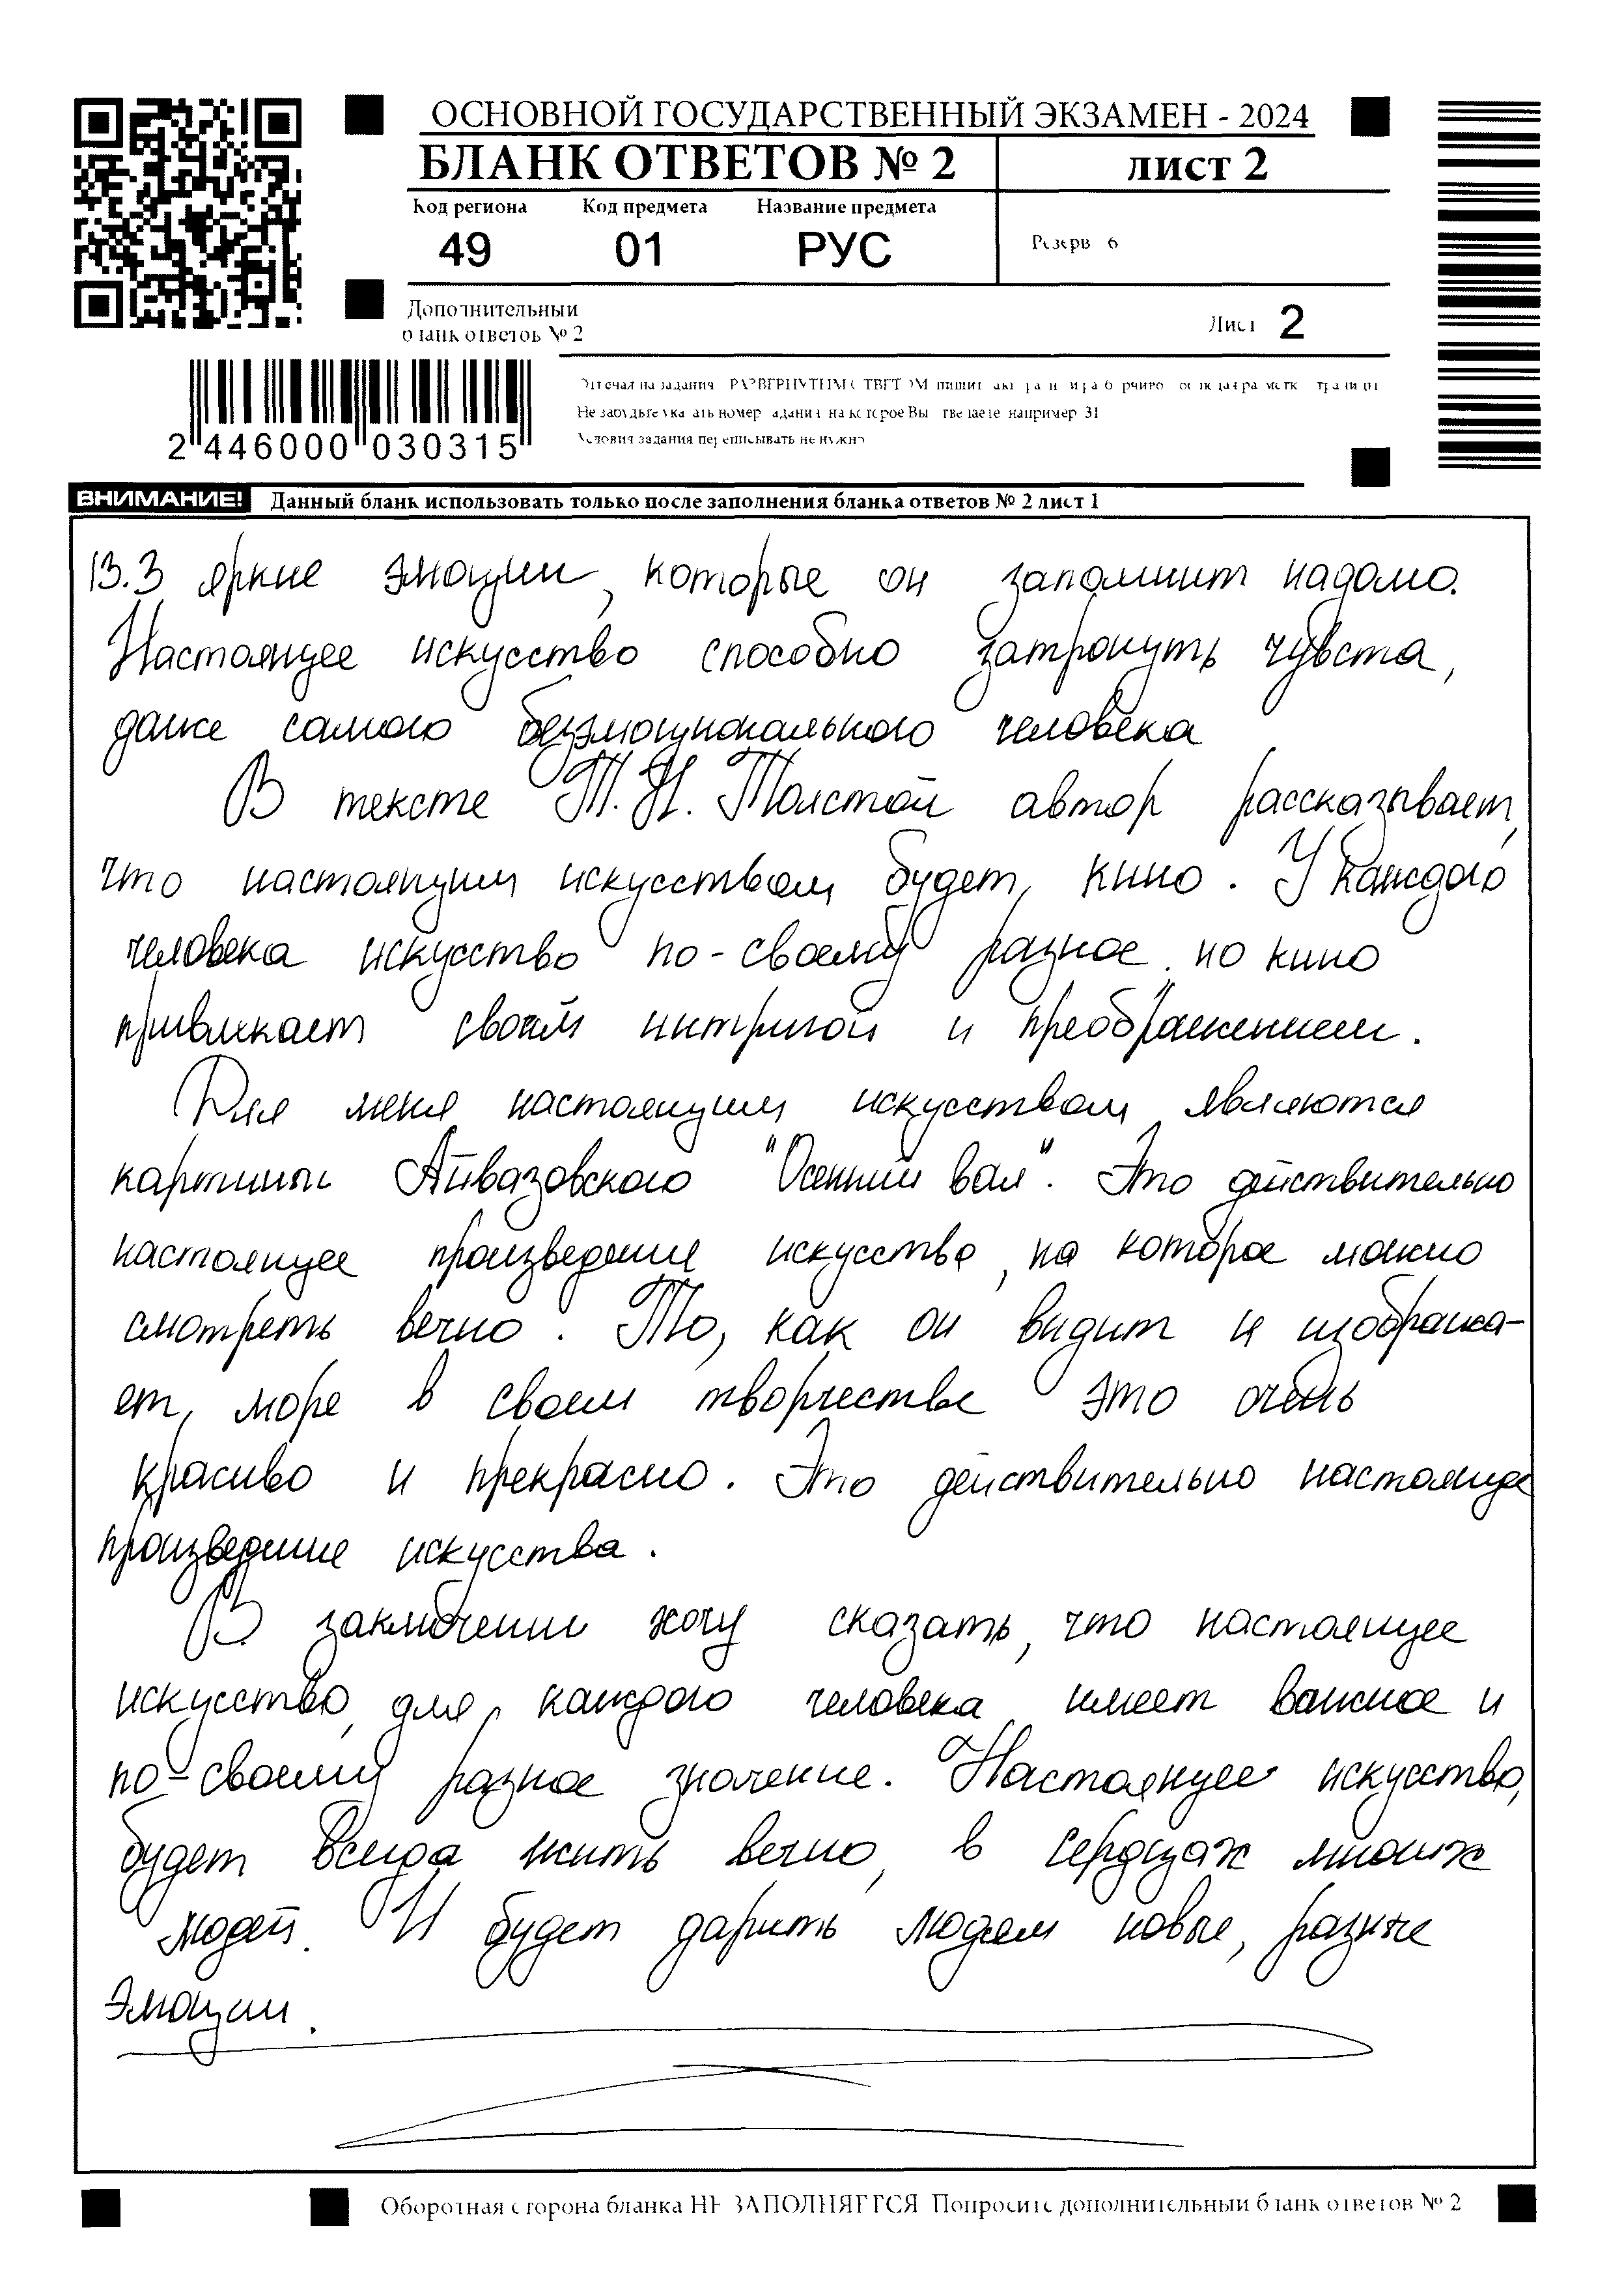 ОСНОВНОЙ ГОСУДАРСТВЕННЫЙ ЭКЗАМЕН - 2024
БЛАНК ОТВЕТОВ № 2
ЛИСТ 2
Код региона Код предмета Название предмета
49 01 РУС
Резерв 6
Дополнительный
бланк ответов № 2
Лист 2
Отвечая на задания с РАЗВЕРНУТЫМ ОТВЕТОМ пишите
Не забудьте указать номер задания на которое Вы отвечаете например 31
Условия задания переписывать не нужно
2 446000 030315
ВНИМАНИЕ! Данный бланк использовать только после заполнения бланка ответов № 2 лист 1
13.3 яркие эмоции, которые он запомнит надолго.
Настоящее искусство способно затронуть чувста,
даже самого безэмоционального человека
В тексте Т.Н. Толстой автор рассказывает,
что настоящим искусством будет, кино. У каждого
человека искусство по-своему разное, но кино
привлекает своей интригой и преображением.
Для меня настоящим искусством являются
картины Айвазовского "Осенний вал". Это действительно
настоящее произведение искусства, на которое можно
смотреть вечно. То, как он видит и изобража-
ет, море в своем творчестве это очень
красиво и прекрасно. Это действительно настоящее
произведение искусства.
В заключении хочу сказать, что настоящее
искусство, для, каждого человека имеет важное и
по-своему разное значение. Настоящее искусство,
будет всегда жить вечно, в сердцах многих
людей. И будет дарить людям новые, разные
эмоции.
Оборотная сторона бланка НЕ ЗАПОЛНЯЕТСЯ Попросите дополнительный бланк ответов № 2